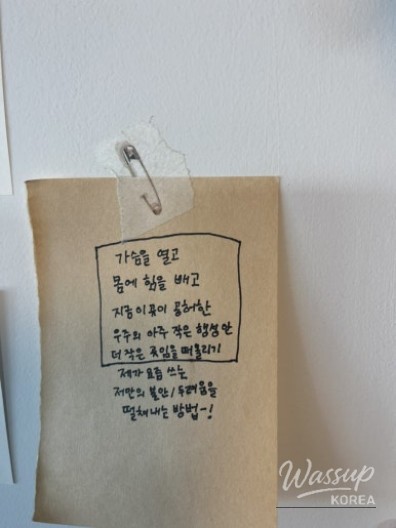 가슴을 열고
몸에 힘을 빼고
지금 이 곳이 광활한
우주의 아주 작은 행성 안
더 작은 곳임을 떠올리기
제가 요즘 쓰는
저만의 불안/두려움을
떨쳐내는 방법~!
Wassup
KOREA